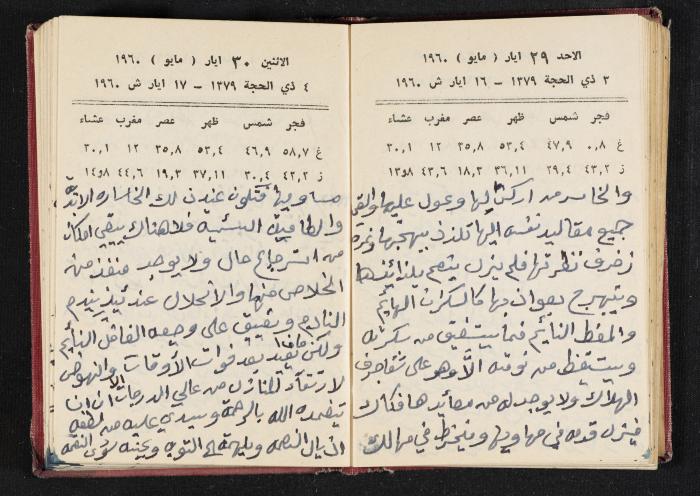 الاحد ٢٩ ايار ( مايو ) ١٩٦٠
٣ ذي الحجة ١٣٧٩ – ١٦ ايار ش ١٩٦٠
فجر شمس ظهر عصر مغرب عشاء
غ ٨,٠ ٤٧,٩ ٥٣,٤ ٣٥,٨ ١٢ ٣٠,١
ز ٤٣,٢ ٢٩,٤ ٣٦,١١ ١٨,٣ ٤٣,٦ ١٣و٨
والخاسر من اركن لها وعول عليها والقى
جميع مقاليد نفسه اليها تلذذ ببهجتها وغره
زخرف نظرتها فلم يزل ينعم بلذائذها
ويبتهج بها كالسكران الهايم
والمفط النايم فما يستفيق من سكرته
ويستيقظ من نومته الا وهو على شفا جرف
الهلاك ولا يوجد له من مصائدها فكاك
فيزل قدمه في مهاويها وينخرط في مهالك
الاثنين ٣٠ ايار ( مايو ) ١٩٦٠
٤ ذي الحجة ١٣٧٩ – ١٧ ايار ش ١٩٦٠
فجر شمس ظهر عصر مغرب عشاء
غ ٥٨,٧ ٤٦,٩ ٥٣,٤ ٣٥,٨ ١٢ ٣٠,١
ز ٤٢,٢ ٣٠,٤ ٣٧,١١ ١٩,٣ ٤٤,٦ ١٤و٨
مساويها فتكون عندئذ لك الخسارة الابدية
فلا هناك يبقى امكان
من استرجاع حال ولا يوجد منفذ منه
الخلاص منها والانحلال عندئذ يندم
النادم ويفيق على وجيعه الغافل النايم
ولكن ماذا يفيد بعد فوات الأوقات والنهوض
لارتقاء للنازل من عالي الدرجات الا ان
يتغمده الله بالرحمة ويسدي عليه من لطفه
اذيال النعمة ويلهمه التوبه ويجنبه النقمه